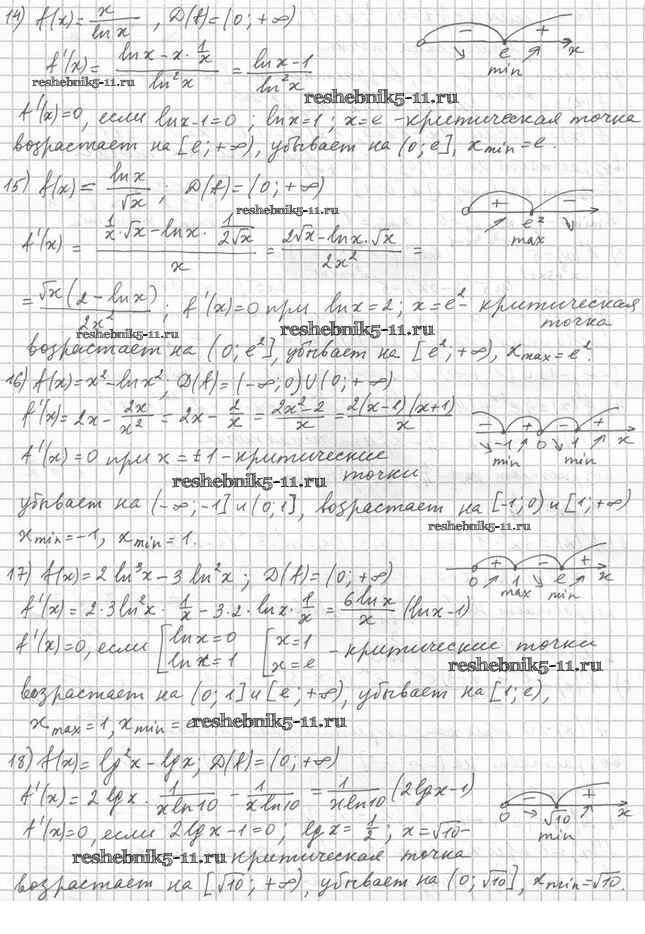 14) f(x) = x/ln x , D(f) = (0; +∞)
− +
e x
min
f'(x) = (ln x − x · 1/x)/ln²x = (ln x − 1)/ln²x
reshebnik5-11.ru
reshebnik5-11.ru
f'(x)=0, если ln x−1=0; ln x=1; x=e - критическая точка
возрастает на [e; +∞), убывает на (0; e], x min = e.
15) f(x) = ln x/√x ; D(f) = (0; +∞)
reshebnik5-11.ru
+ −
0 e²
max
f'(x) = (1/x · √x − ln x · 1/(2√x))/x = (2√x − ln x · √x)/2x² =
= √x(2 − ln x)/2x² ; f'(x)=0 при ln x = 2; x = e² - критическая
точка
reshebnik5-11.ru
reshebnik5-11.ru
возрастает на (0; e²], убывает на [e²; +∞), x max = e².
16) f(x) = x² − ln x²; D(f) = (−∞; 0) ∪ (0; +∞)
f'(x) = 2x − 2x/x² = 2x − 2/x = (2x² − 2)/x = 2(x−1)(x+1)/x
− + − +
−1 0 1 x
min min
f'(x) = 0 при x = ±1 - критические
точки
reshebnik5-11.ru
убывает на (−∞; −1] и (0; 1], возрастает на [−1; 0) и [1; +∞)
reshebnik5-11.ru
x min = −1, x min = 1.
17) f(x) = 2 ln³x − 3 ln²x; D(f) = (0; +∞)
+ − +
0 1 e x
max min
f'(x) = 2·3 ln²x · 1/x − 3·2 · ln x · 1/x = 6 ln x/x (ln x −1)
f'(x)=0, если [ln x = 0 [x = 1 - критические точки
ln x = 1 x = e
reshebnik5-11.ru
возрастает на (0; 1] и [e; +∞), убывает на [1; e),
x max = 1, x min = e
reshebnik5-11.ru
18) f(x) = lg²x − lg x; D(f) = (0; +∞)
f'(x) = 2 lg x · 1/(x ln 10) − 1/(x ln 10) = 1/(x ln 10) (2 lg x −1)
− +
0 √10 x
min
f'(x)=0, если 2 lg x − 1 = 0; lg x = 1/2; x = √10 -
reshebnik5-11.ru критическая точка
возрастает на [√10; +∞), убывает на (0; √10], x min = √10.